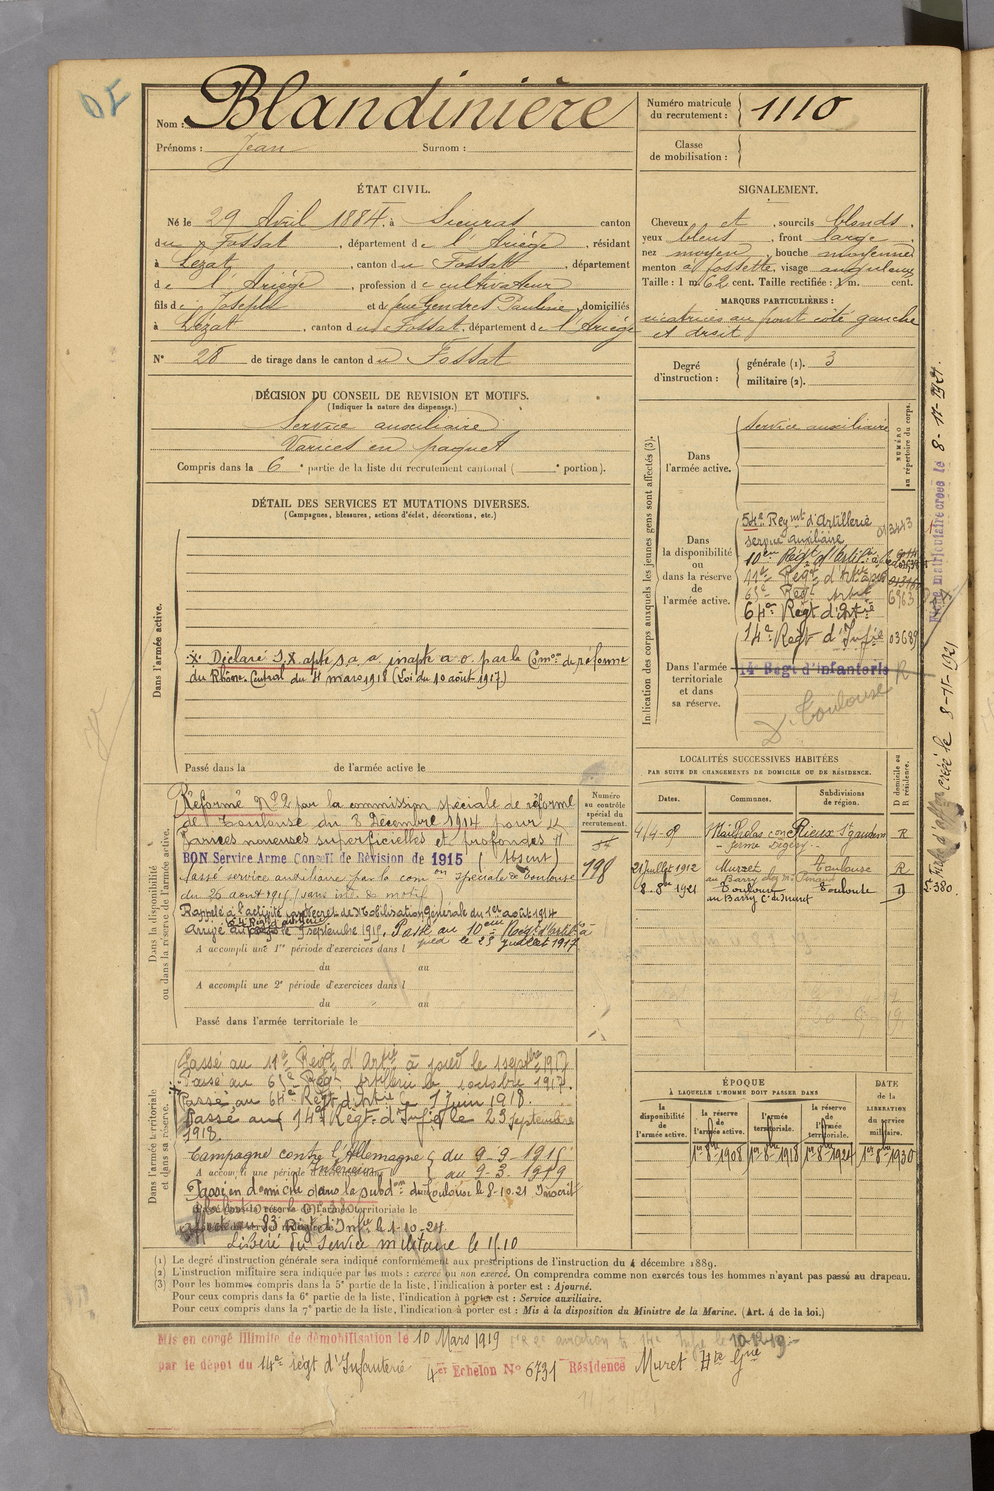 Nom : Blandinière
Prénoms : Jean Surnom :
Numéro matricule du recrutement : 1110
Classe de mobilisation :
ÉTAT CIVIL.
Né le 29 Avril 1884, à Sieuras canton
du Fossat, département de l'Ariège, résidant
à Lezat, canton du Fossat, département
de l'Ariège, profession de cultivateur
fils de Joseph et de feue Gendres Pauline, domiciliés
à Lezat, canton du Fossat, département de l'Ariège
N° 28 de tirage dans le canton du Fossat
SIGNALEMENT.
Cheveux et, sourcils blonds,
yeux bleus, front large,
nez moyen, bouche moyenne
menton à fossette, visage anguleux
Taille : 1 m. 62 cent. Taille rectifiée : 1 m. cent.
MARQUES PARTICULIÈRES :
cicatrices au front côté gauche
et droit
Degré d'instruction : générale (1). 3
militaire (2).
DÉCISION DU CONSEIL DE REVISION ET MOTIFS.
(Indiquer la nature des dispenses.)
Service auxiliaire
Varices en paquet
Compris dans la 6e partie de la liste du recrutement cantonal ( e portion).
DÉTAIL DES SERVICES ET MUTATIONS DIVERSES.
(Campagnes, blessures, actions d'éclat, décorations, etc.)
Dans l'armée active.
Déclaré S.X apte s.a.a. inapte a.o. par la Comon de réforme
du Rhône-Central du 4 mars 1918 (Loi du 10 août 1917)
Passé dans la de l'armée active le
Indication des corps auxquels les jeunes gens sont affectés (3).
NUMÉRO au répertoire du corps.
Dans l'armée active.
Service auxiliaire
Dans la disponibilité ou dans la réserve de l'armée active.
54e Regmt d'Artillerie
service auxiliaire
10eme Régt d'Artie à
11e Régt d'Artie à pied
65e Régt Artie 6963
64e Régt d'Artie
14e Régt d'Infie 03689
Dans l'armée territoriale et dans sa réserve.
14e Régt d'infanterie R
Dt Toulouse
Fiche matriculaire créée le 8-11-1921.
créé le 8-11-1921
LOCALITÉS SUCCESSIVES HABITÉES
PAR SUITE DE CHANGEMENTS DE DOMICILE OU DE RÉSIDENCE.
Dates. Communes. Subdivisions de région. D domicile ou R résidence.
4/4-09 Mailholas con Rieux St gaudens R
21 juillet 1912 Muret Toulouse R
8-8bre 1921 Toulouse Toulouse D
au Barry C. de Muret
Dans la disponibilité ou dans la réserve de l'armée active.
Numéro au contrôle spécial du recrutement.
198
Réformé N°2 par la commission spéciale de réforme
de Toulouse du 3 Décembre 1914 pour
Varices noueuses superficielles et profondes
BON Service Armé Conseil de Révision de 1915 (Absent)
Classé service auxiliaire par la comon spéciale de Toulouse
du 26 août 1915 (sans ind. de motif)
Rappelé à l'activité par Décret de Mobilisation Générale du 1er août 1914
Arrivé au corps le 9 septembre 1915. Passé au 10eme Régt d'Artie à
pied le 25 juillet 1917
A accompli une 1re période d'exercices dans l
du au
A accompli une 2e période d'exercices dans l
du au
Passé dans l'armée territoriale le
Dans l'armée territoriale et dans sa réserve.
Passé au 11e Regt d'Artie à pied le 1 septbre 1917
Passé au 65e Régt Artillerie le 1 octobre 1917.
Passé au 64e Régt d'Artie le 1 juin 1918.
Passé au 14e Régt d'Infie le 23 septembre
1918.
Campagne contre l'Allemagne du 9-9-1915
A accompli une période Intérieur au 9-3-1919
Passé en domicile dans la subdon de Toulouse le 8-10-21 Inscrit
affecté au 83e Régt d'Infie le 1-10-24
Libéré du service militaire le 1/10
ÉPOQUE
À LAQUELLE L'HOMME DOIT PASSER DANS
la disponibilité de l'armée active. la réserve de l'armée active. l'armée territoriale. la réserve de l'armée territoriale. DATE de la LIBÉRATION du service militaire.
1er 8bre 1908 1er 8bre 1918 1er 8bre 1924 1er 8bre 1930
(1) Le degré d'instruction générale sera indiqué conformément aux prescriptions de l'instruction du 4 décembre 1889.
(2) L'instruction militaire sera indiquée par les mots : exercé ou non exercé. On comprendra comme non exercés tous les hommes n'ayant pas passé au drapeau.
(3) Pour les hommes compris dans la 5e partie de la liste, l'indication à porter est : Ajourné.
Pour ceux compris dans la 6e partie de la liste, l'indication à porter est : Service auxiliaire.
Pour ceux compris dans la 7e partie de la liste, l'indication à porter est : Mis à la disposition du Ministre de la Marine. (Art. 4 de la loi.)
Mis en congé illimité de démobilisation le 10 Mars 1919
par le dépôt du 14e régt d'Infanterie 4er Echelon N° 6731 Résidence Muret Hte Gne